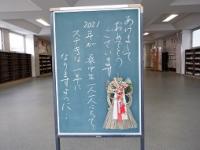 あけまして
おめでとう
ございます
2021
年が 皆さま 一人一人にとって
ステキな 一年に
なりますように…